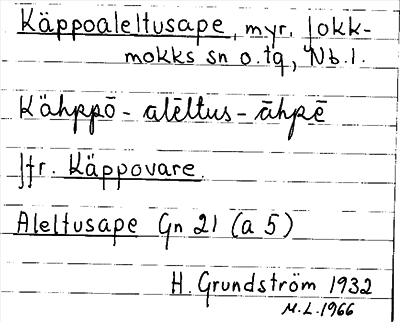 Käppoaleltusape, myr. Jokk-
mokks sn o. tg, Nb.l.
Kähppō - alēltus - āhpē
Jfr. Käppovare.
Aleltusape Gn 21 (a 5)
H. Grundström 1932
M.L. 1966